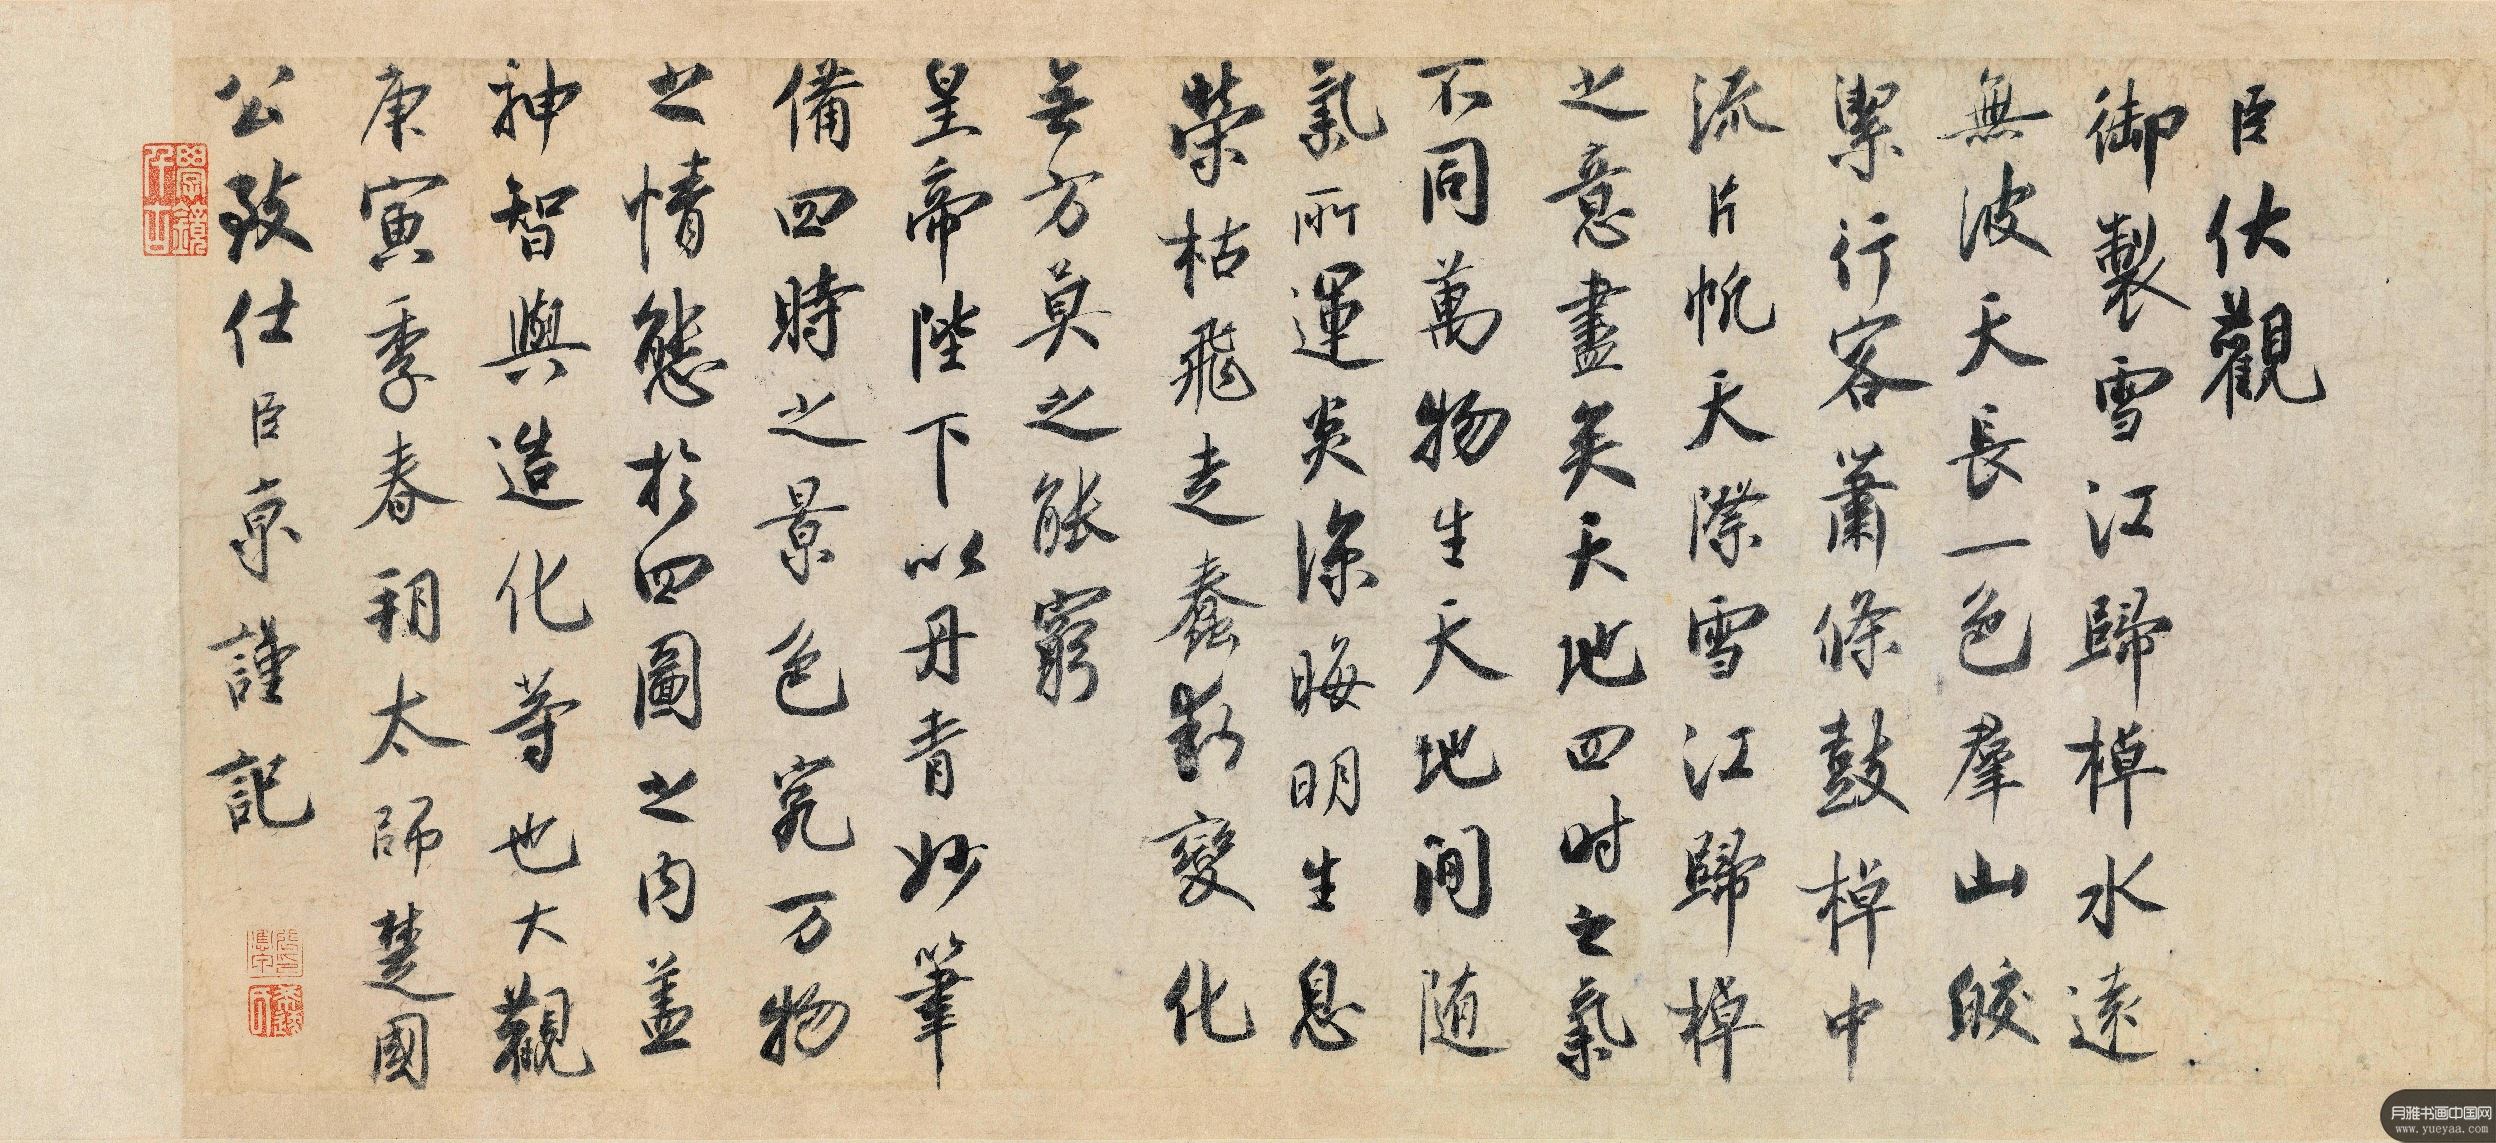 臣伏觀
御製雪江歸棹水遠
無波天長一色羣山皎
潔行客蕭條鼓棹中
流片帆天際雪江歸棹
之意盡矣天地四时之氣
不同萬物生天地間随
氣所運炎涼晦明生息
榮枯飛走蠢動變化
無方莫之能窮
皇帝陛下以丹青妙筆
備四時之景色究万物
之情態於四圖之内盖
神智與造化等也大觀
庚寅季春朔太師楚國
公致仕臣京謹記
月雅书画中国网
www.yueyaa.com